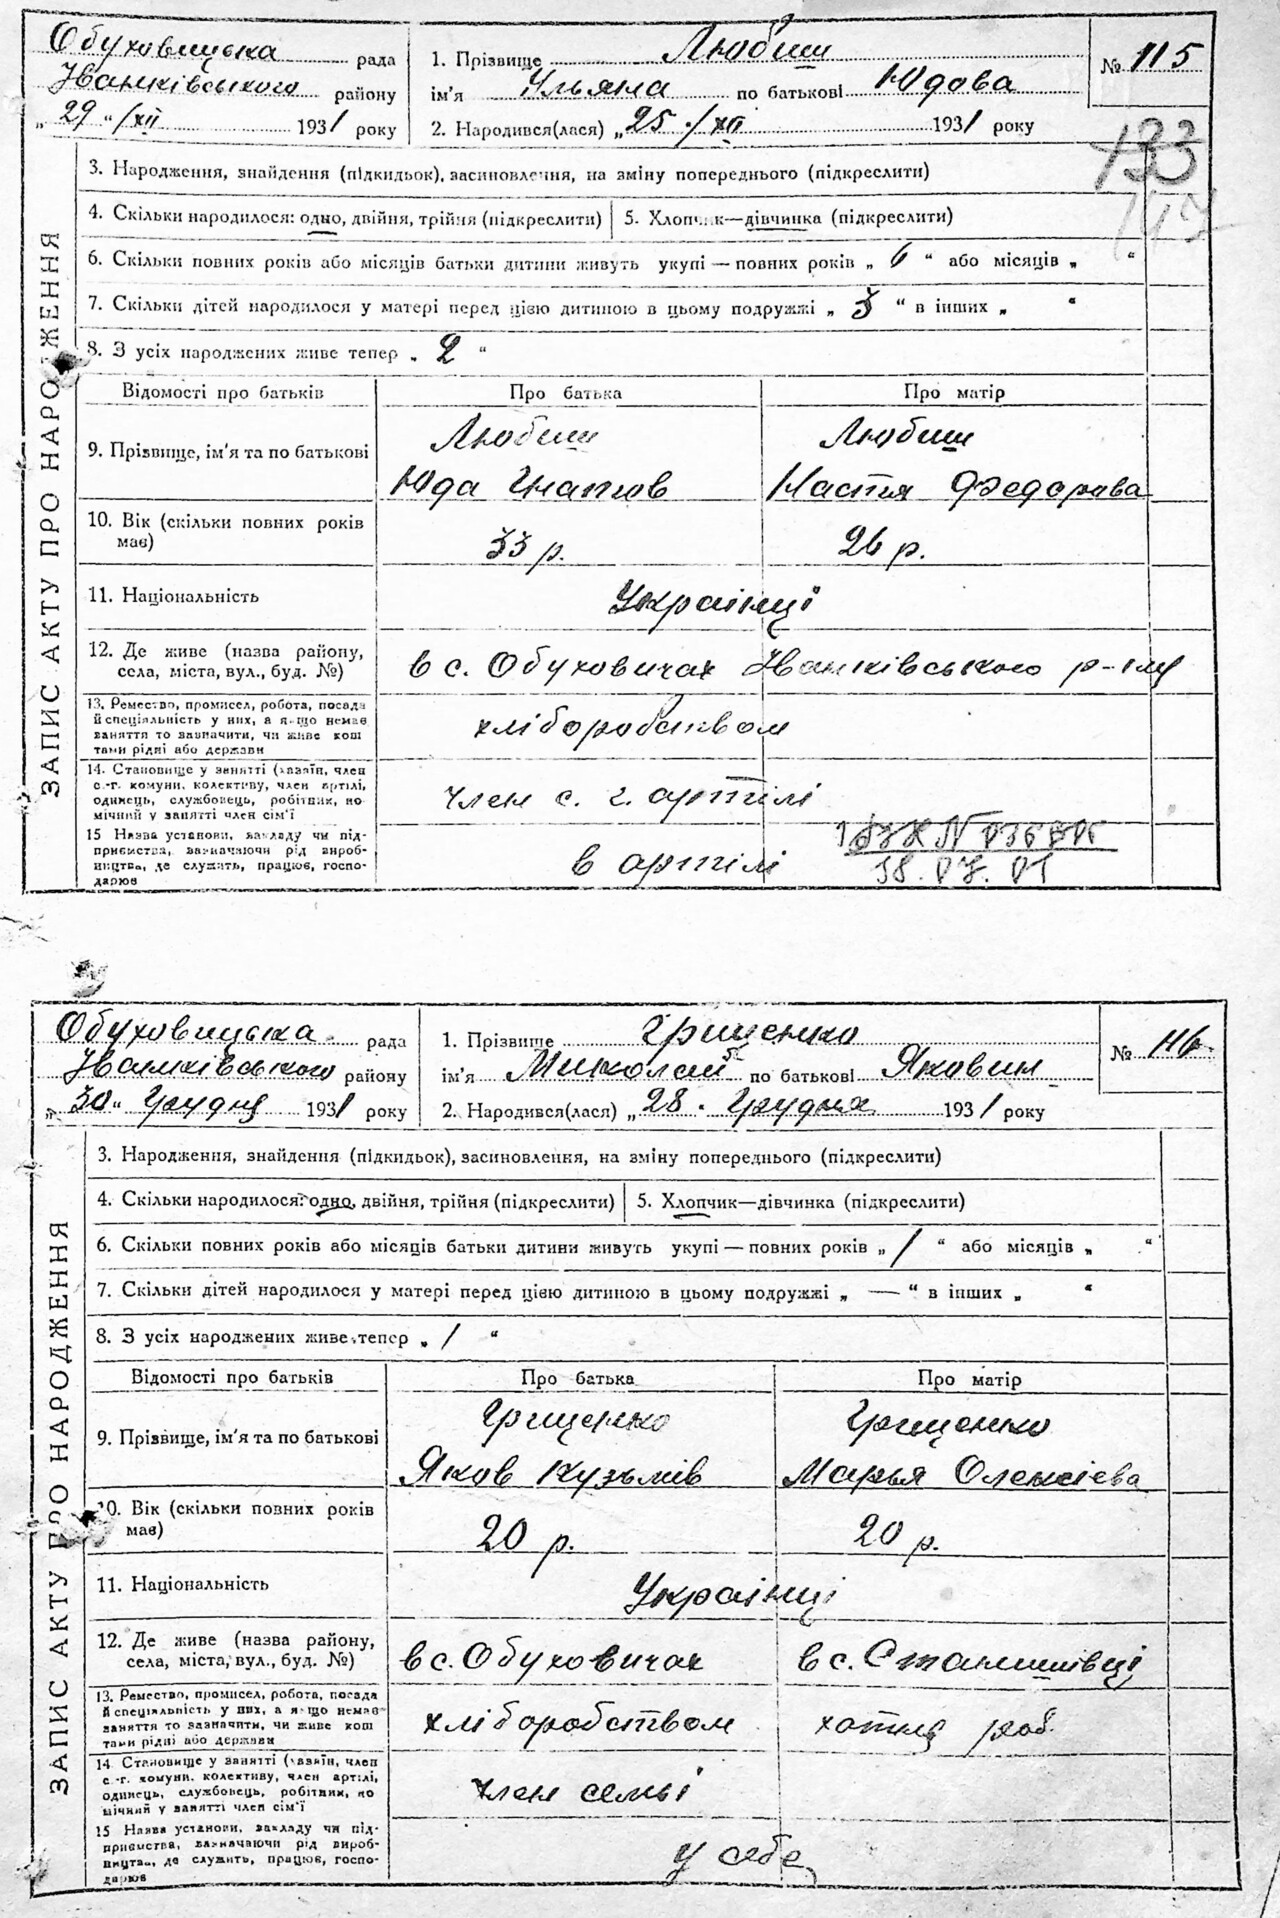 Обуховицька рада
Іванківського району
„29“/XII 1931 року
1. Прізвище Любиш
ім'я Ульяна по батькові Юдова
2. Народився(лася) „25“/XII 1931 року
№ 115
133
147
ЗАПИС АКТУ ПРО НАРОДЖЕННЯ
3. Народження, знайдення (підкидьок), засиновлення, на зміну попереднього (підкреслити)
4. Скільки народилося: одно, двійня, трійня (підкреслити) 5. Хлопчик—дівчинка (підкреслити)
6. Скільки повних років або місяців батьки дитини живуть укупі — повних років „ 6 “ або місяців „ “
7. Скільки дітей народилося у матері перед цією дитиною в цьому подружжі „ 3 “ в інших „ “
8. З усіх народжених живе тепер „ 2 “
Відомості про батьків Про батька Про матір
9. Прізвище, ім'я та по батькові
Любиш Любиш
Юда Гнатов Настя Федорова
10. Вік (скільки повних років має) 33 р. 26 р.
11. Національність Українці
12. Де живе (назва району,
села, міста, вул., буд. №) в с. Обуховичах Іванківського р-ну
13. Ремество, промисел, робота, посада
й спеціяльність у них, а якщо немає
заняття то зазначити, чи живе кош
тами рідні або держави
хліборобством
14. Становище у занятті (хазяїн, член
с.-г. комуни, колективу, член артілі,
одинець, службовець, робітник, по
мічний у занятті член сім'ї
член с. г. артілі
15 Назва установи, закладу чи під-
приємства, зазначаючи рід вироб-
ництва, де служить, працює, госпо-
дарює
в артілі
Обуховицька рада
Іванківського району
„30“ Грудня 1931 року
1. Прізвище Грищенко
ім'я Миколай по батькові Яковин
2. Народився(лася) „28. Грудня 1931 року
№ 116
ЗАПИС АКТУ ПРО НАРОДЖЕННЯ
3. Народження, знайдення (підкидьок), засиновлення, на зміну попереднього (підкреслити)
4. Скільки народилося: одно, двійня, трійня (підкреслити) 5. Хлопчик—дівчинка (підкреслити)
6. Скільки повних років або місяців батьки дитини живуть укупі — повних років „ 1 “ або місяців „ “
7. Скільки дітей народилося у матері перед цією дитиною в цьому подружжі „ — “ в інших „ “
8. З усіх народжених живе тепер „ 1 “
Відомості про батьків Про батька Про матір
9. Прізвище, ім'я та по батькові
Грищенко Грищенко
Яков Кузьмів Марья Олексієва
10. Вік (скільки повних років має) 20 р. 20 р.
11. Національність Українці
12. Де живе (назва району,
села, міста, вул., буд. №) в с. Обуховичах в с. Станишівці
13. Ремество, промисел, робота, посада
й спеціяльність у них, а якщо немає
заняття то зазначити, чи живе кош
тами рідні або держави
хліборобством хатня роб.
14. Становище у занятті (хазяїн, член
с.-г. комуни, колективу, член артілі,
одинець, службовець, робітник, по
мічний у занятті член сім'ї
член семьі
15 Назва установи, закладу чи під-
приємства, зазначаючи рід вироб-
ництва, де служить, працює, госпо-
дарює
у себе